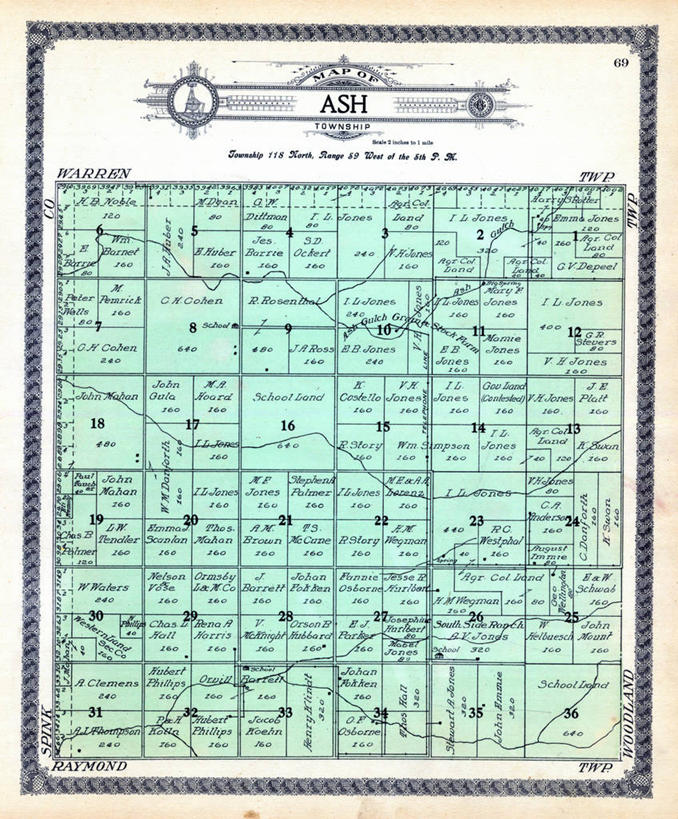 69
MAP OF
ASH
TOWNSHIP
Scale 2 inches to 1 mile
Township 118 North, Range 59 West of the 5th P. M.
WARREN TWP.
CO
TWP
H.B. Noble 120
M. Dyan 80
G.W. Dittmon 80
I. L. Jones
Agr. Col. Land 80
I L Jones
Gulch
Harry S Potter
Emma Jones 120
6 5 4 3 2 1
E. Barrie 80
Wm Barnet 160
J.A. Huber 240
E. Huber 160
Jes. Barrie 160
S.D. Ockert 160
240
N.H. Jones 160
120
320
Agr Col Land
Agr. Col Land
40 160
Agr. Col Land 80
G.V. Depeel
Peter Walls 80
M. Pemrick 160
C.H. Cohen
R. Rosenthal
I L Jones 240
Jones 160
I L Jones 160
Ash
Big Spring
Mary E Jones 160
I L Jones
400
7 8 9 10 11 12
School
Ash Gulch Grain & Stock Farm
G.R. Stevers 80
G.H. Cohen 240
640
480
J A Ross 160
E.B. Jones 240
V. H.
LINE
E B Jones 160
Mamie Jones 160
V. H Jones 160
John Mahan
John Gula 160
M.A. Hoard 160
School Land
K Costello 160
V.H. Jones 160
TELEPHONE
I L Jones 160
Gov Land (Contested) 160
V.H. Jones 160
J. E Platt 160
18 17 16 15 14 13
480
W M Danforth 160
I L Jones 160
640
R. Story 160
Wm. Simpson 160
I L Jones 160
Agr. Col Land
40 120
K Swan 160
Paul
John Mahan 160
I L Jones 160
M.E Jones 160
Stephen Palmer 160
I L Jones 160
M.E & A.A. Lorenz 160
I L Jones
V.H Jones 80
C. A. Anderson 160
C. Danforth 160
K Swan 160
19 20 21 22 23 24
Chas. B Palmer 120
L.W. Tendler 160
Emma Scanlan 160
Thos. Mahan 160
A.M. Brown 160
T.S. McCune 160
R Story 160
H.M. Wegman 160
440
R.C. Westphal 160
Spring 40
August Immie 80
W Waters 240
Nelson Vose 160
Ormsby L & M. Co 160
J. Barrett 160
Johan Fokken 160
Fannie Osborne 160
Jesse R Hurlbert 160
Agr Col Land
H.M Wegman 160
160 80
Geo Wellington 80
E & W Schwab 160
30 29 28 27 26 25
Western Land Sec Co 160
Phillips 40
Chas L Hall 160
Rena A Harris 160
V. McKnight 160
Orson E Hubbard 160
E J Parker 160
Josephine Hurlbert 80
Mabel Jones 80
South Side Ranch
A.V. Jones 320
School
W Helbusch 160
John Mount 160
A. Clemens 240
Hubert Phillips 160
Orvill Barrett
160 160
School
Henry Klindt 320
Johan Fokken 160
Enos Hall 320
Stewart A Jones 320
John Emmie 320
School Land
640
31 32 33 34 35 36
A.L Thompson 240
P & H Kolln 160
Hubert Phillips 160
Jacob Koehn 160
O F Osborne 160
SPINK
WOODLAND
RAYMOND TWP.